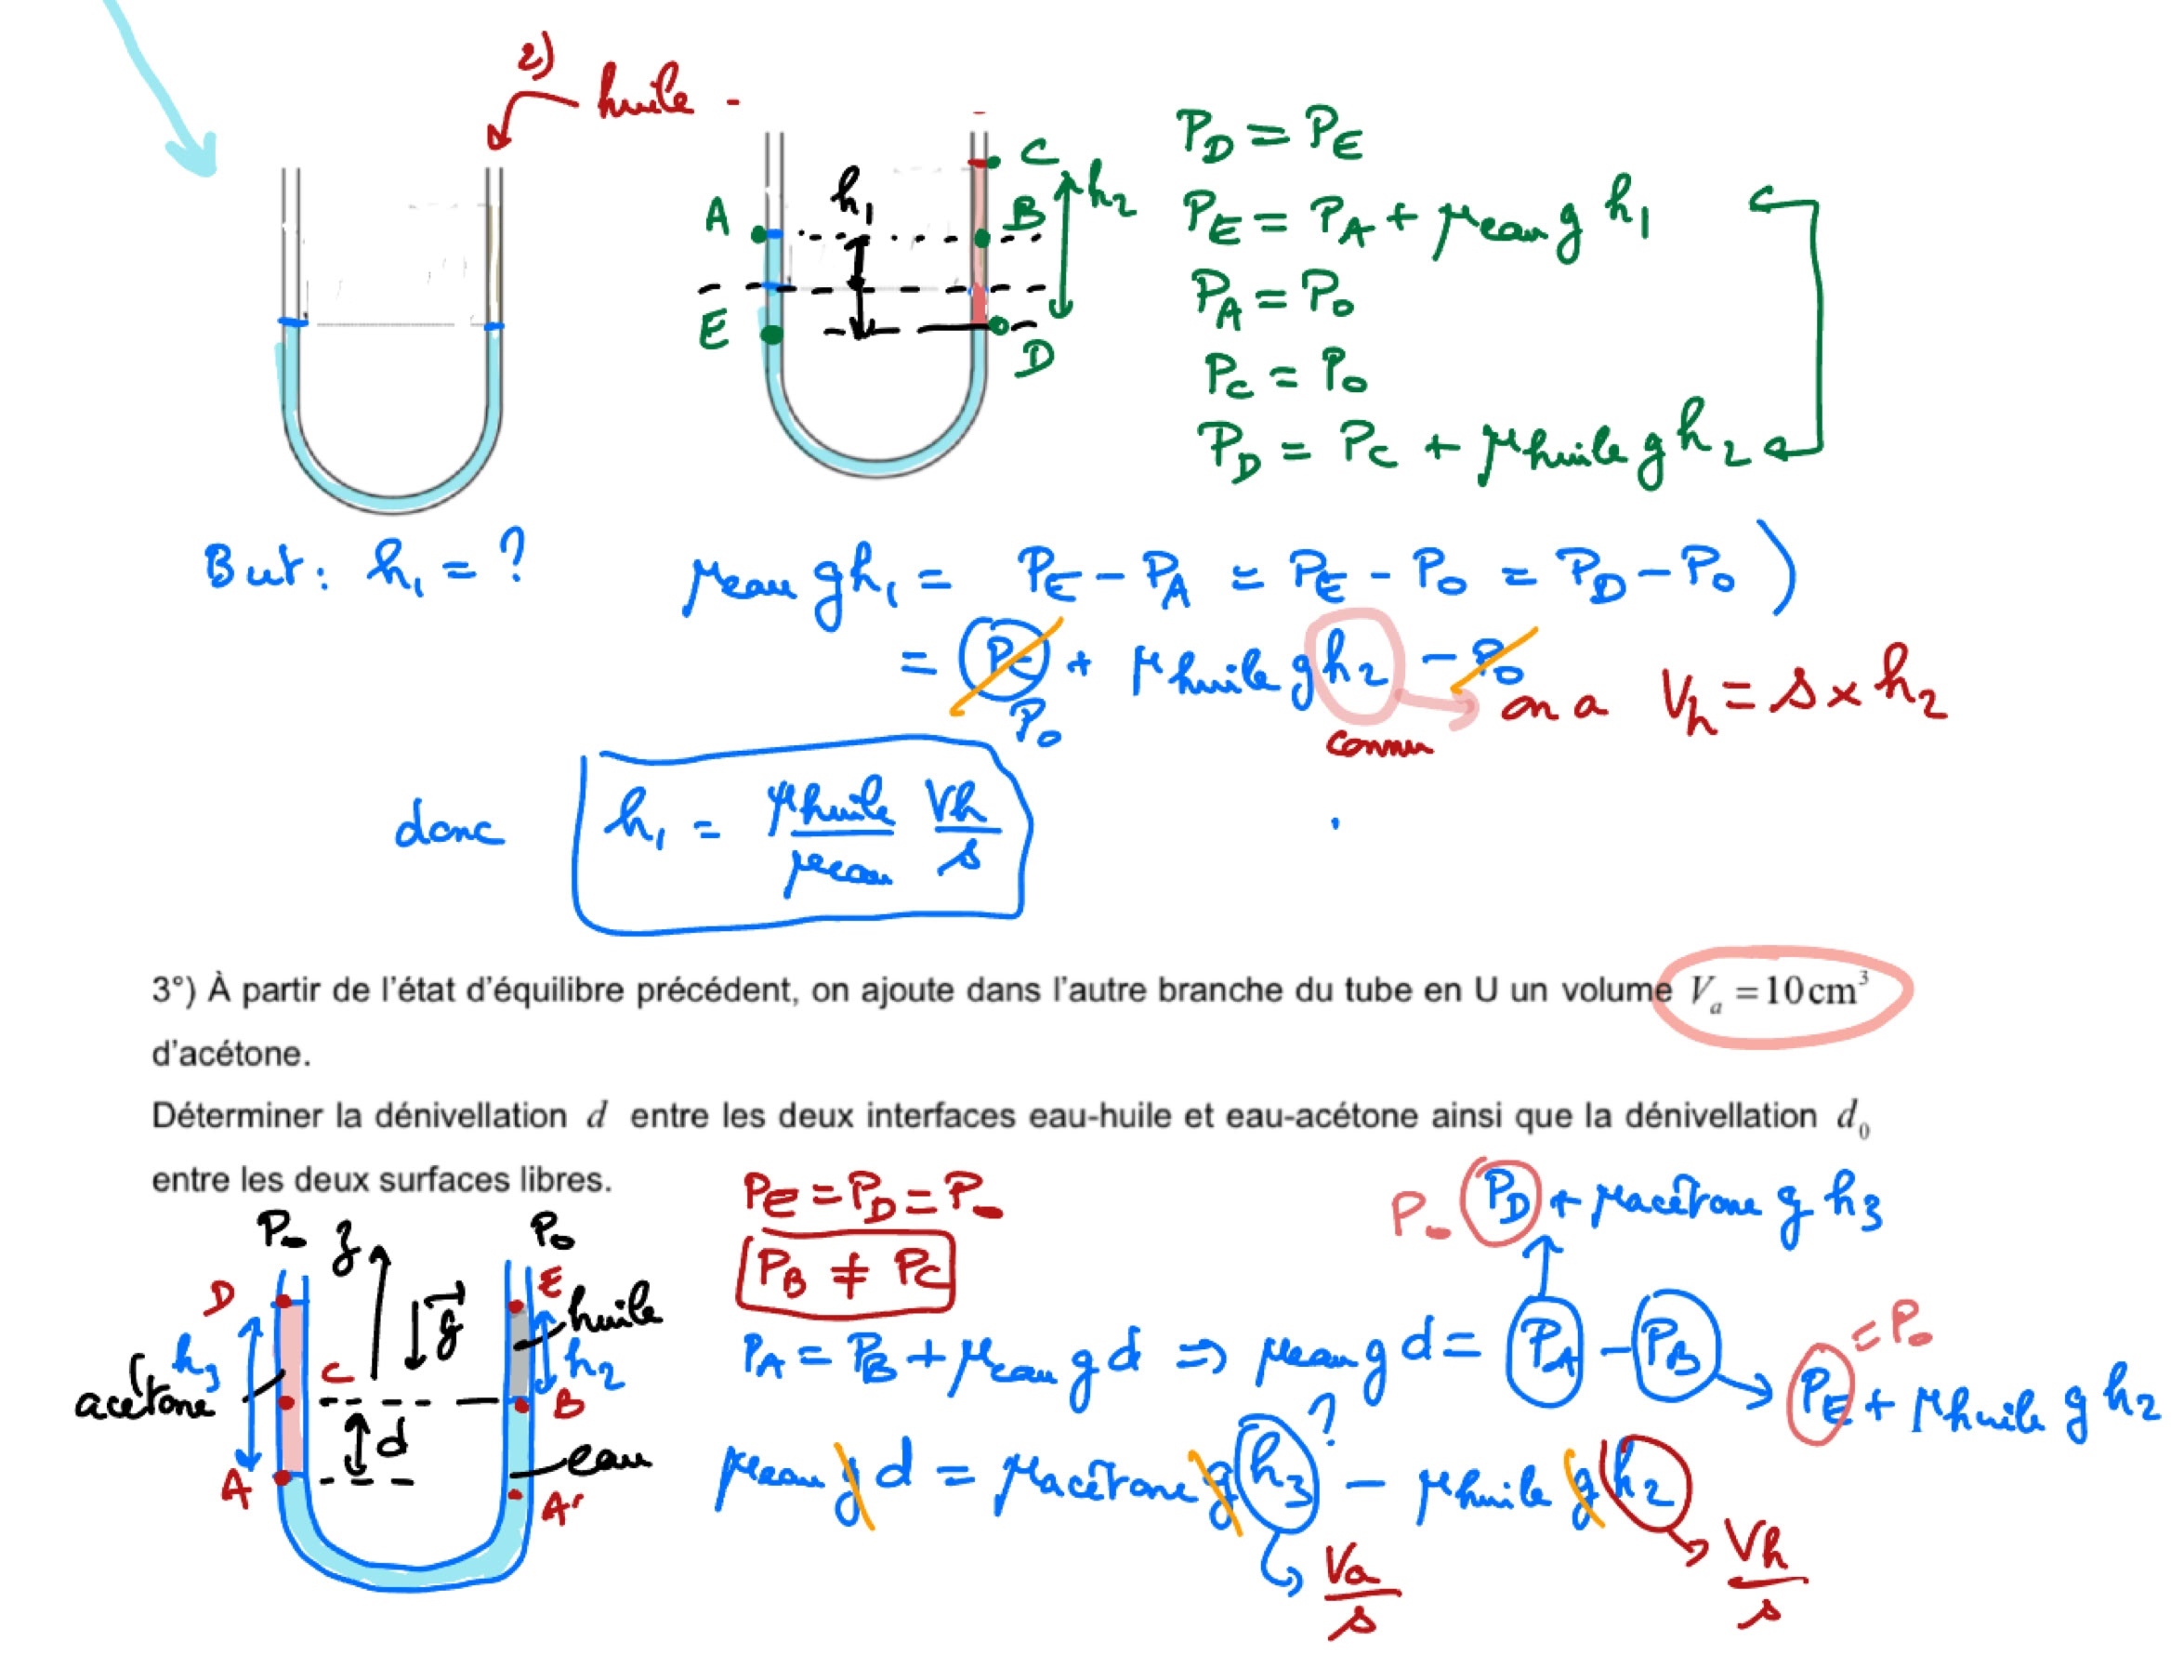 2) huile -
A
E
h₁
C
B
h₂
D
P_D = P_E
P_E = P_A + μeau g h₁
P_A = P₀
P_C = P₀
P_D = P_C + μhuile g h₂
But : h₁ = ?
μeau g h₁ = P_E - P_A = P_E - P₀ = P_D - P₀ )
= P_C + μhuile g h₂ - P₀
P₀
connu
on a V_h = s × h₂
donc h₁ = μhuile/μeau Vh/s
3°) À partir de l'état d'équilibre précédent, on ajoute dans l'autre branche du tube en U un volume V_a = 10 cm³
d'acétone.
Déterminer la dénivellation d entre les deux interfaces eau-huile et eau-acétone ainsi que la dénivellation d₀
entre les deux surfaces libres.
P₀ z P₀
D
E
huile
g⃗
h₃
h₂
acétone
C
B
d
eau
A
A'
P_E = P_D = P₀
P_B ≠ P_C
P₀ P_D + μacétone g h₃
P_A = P_B + μeau g d ⇒ μeau g d = P_A - P_B
= P₀
P_E + μhuile g h₂
μeau g d = μacétone g h₃ - μhuile g h₂
?
Va/s
Vh/s